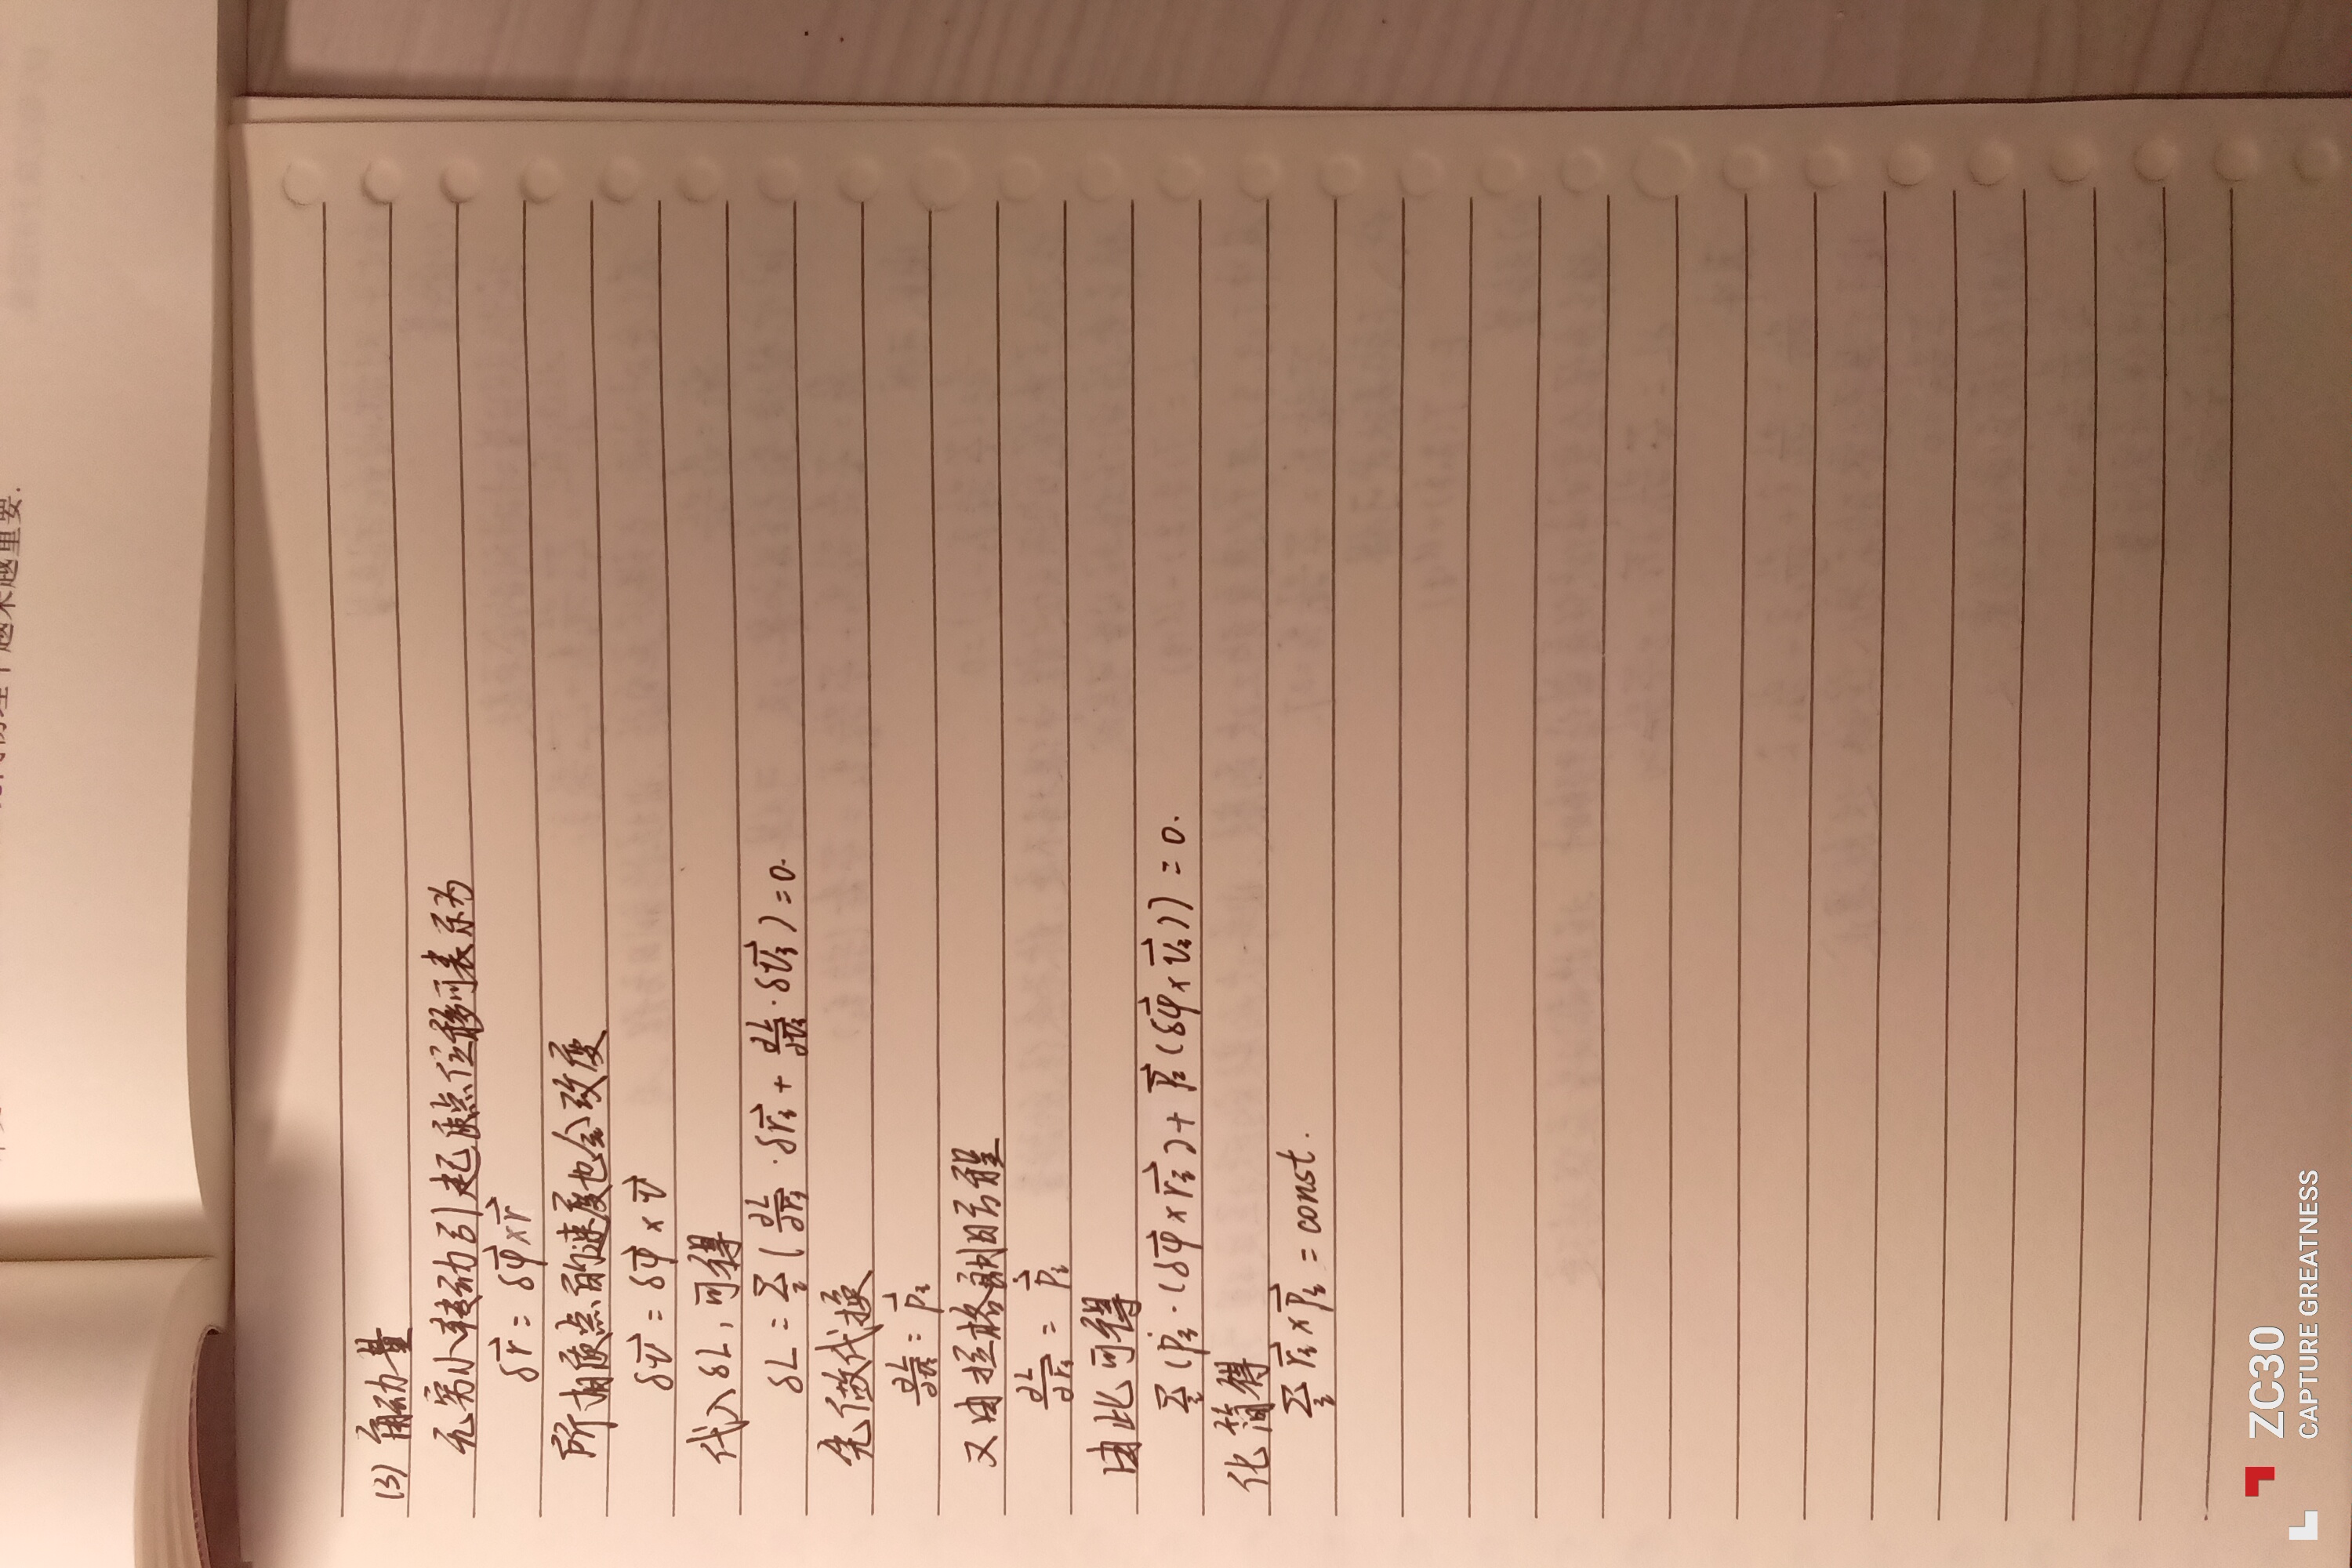 越来越重要.
(3) 角动量
无穷小转动引起质点位移表示为
δr⃗ = δφ⃗ × r⃗
所有质点的速度也会改变
δv⃗ = δφ⃗ × v⃗
代入δL, 可得
δL = Σᵢ (∂L/∂r⃗ᵢ · δr⃗ᵢ + ∂L/∂v⃗ᵢ · δv⃗ᵢ) = 0.
先做代换
∂L/∂v⃗ᵢ = p⃗ᵢ
又由拉格朗日方程
∂L/∂r⃗ᵢ = ṗ⃗ᵢ
由此可得
Σᵢ (ṗᵢ · (δφ⃗ × r⃗ᵢ) + p⃗ᵢ (δφ⃗ × v⃗ᵢ)) = 0.
化简得
Σᵢ r⃗ᵢ × p⃗ᵢ = const.
ZC30
CAPTURE GREATNESS